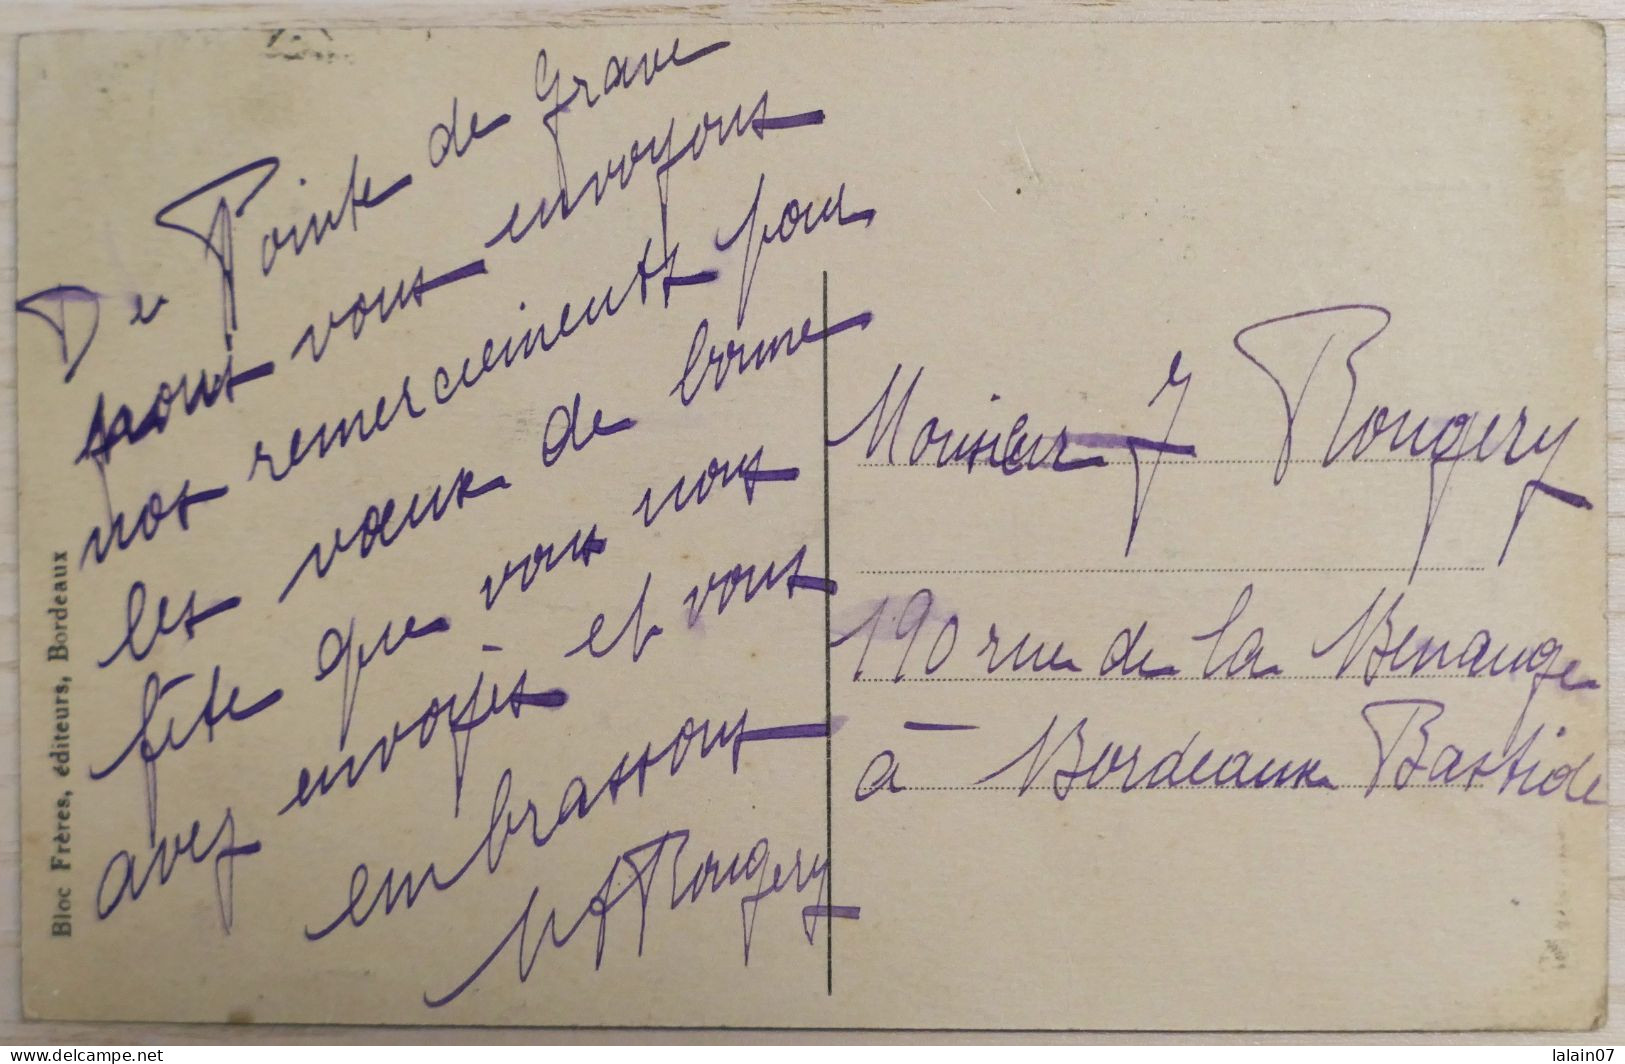 De Pointe de Grave
nous vous envoyons
nos remerciements pour
les vœux de bonne
fête que vous nous
avez envoyés et vous
embrassons
Rougery
Monsieur J Rougery
190 rue de la Benauge
à Bordeaux Bastide
Bloc Frères, éditeurs, Bordeaux
www.delcampe.net
lalain07